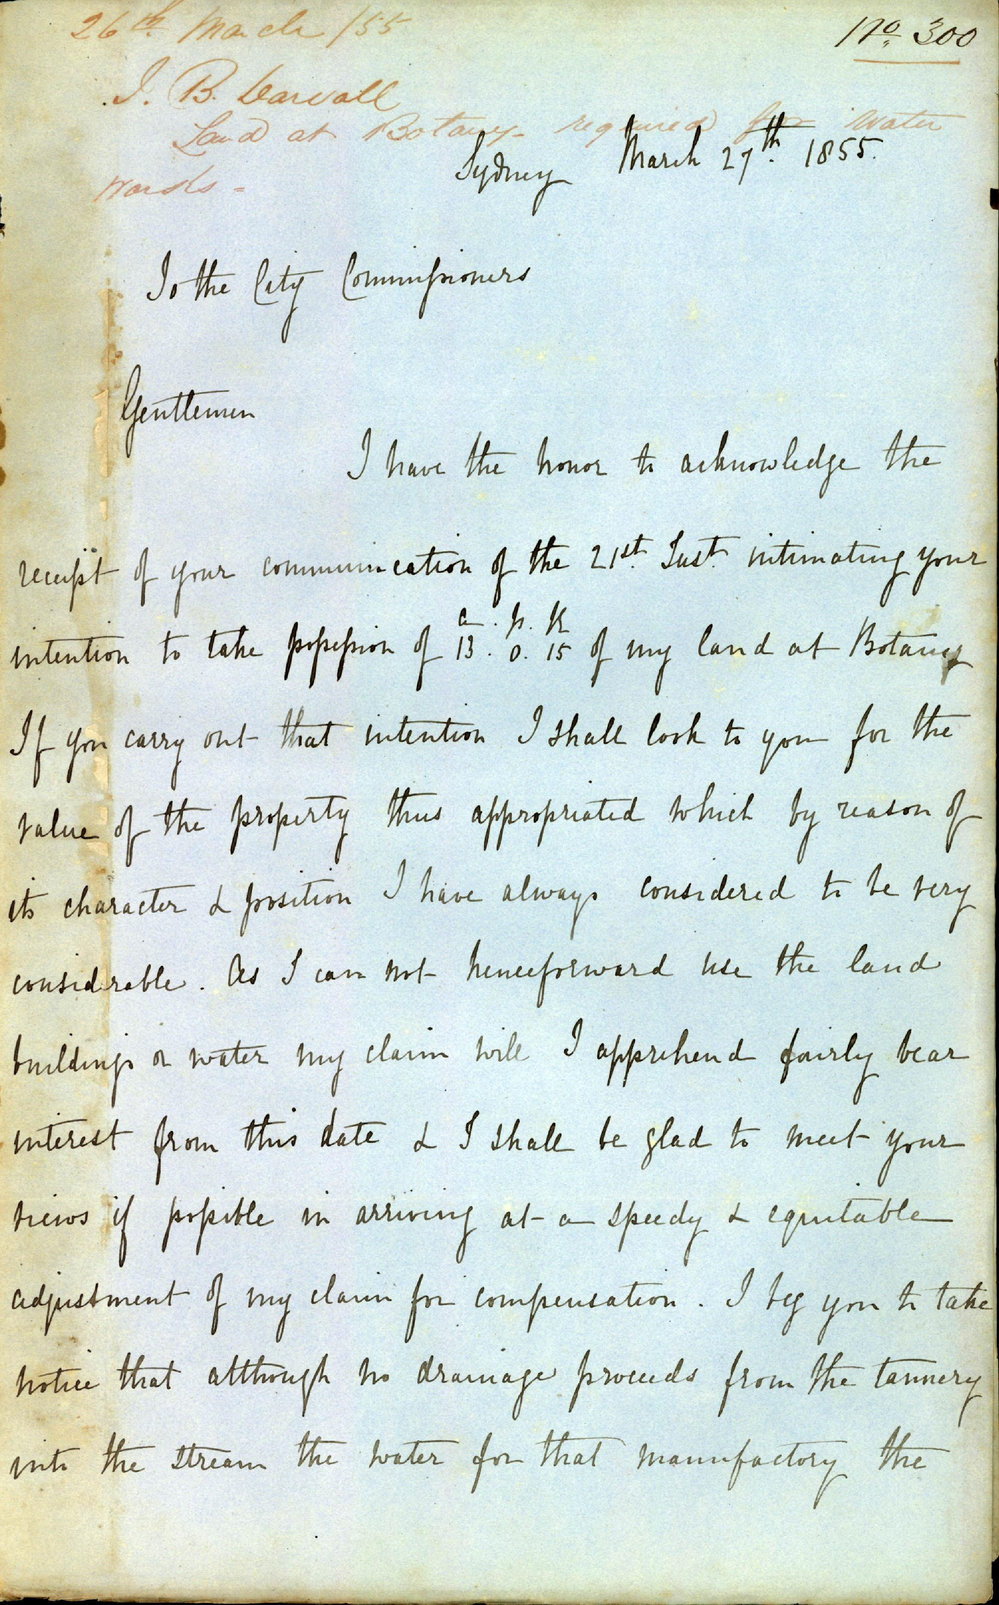 26th March /55
No. 300
J. B. Darvall
Land at Botany required for Water
Works -
Sydney March 27th. 1855.
To the City Commissioners
Gentlemen
I have the honor to acknowledge the
receipt of your communication of the 21st. Inst. intimating your
a. p. R
intention to take possession of 13. 0. 15 of my land at Botany
If you carry out that intention I shall look to you for the
value of the property thus appropriated which by reason of
its character & position I have always considered to be very
considerable. As I can not henceforward use the land
buildings or water my claim will I apprehend fairly bear
interest from this date & I shall be glad to meet your
views if possible in arriving at a speedy & equitable
adjustment of my claim for compensation. I beg you to take
notice that although no drainage proceeds from the tannery
into the stream the water for that manufactory the